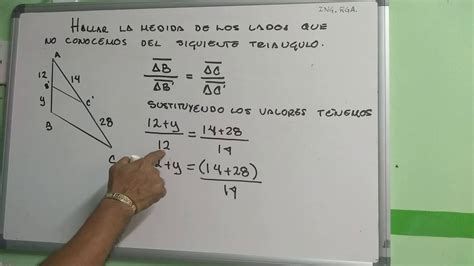 ING. RGA.
HALLAR LA MEDIDA DE LOS LADOS QUE
NO CONOCEMOS DEL SIGUIENTE TRIANGULO.
A
12
14
B'
C'
y
B
28
C
AB / AB' = AC / AC'
SUSTITUYENDO LOS VALORES TENEMOS
12+y / 12 = 14+28 / 14
2+y = (14+28) / 14